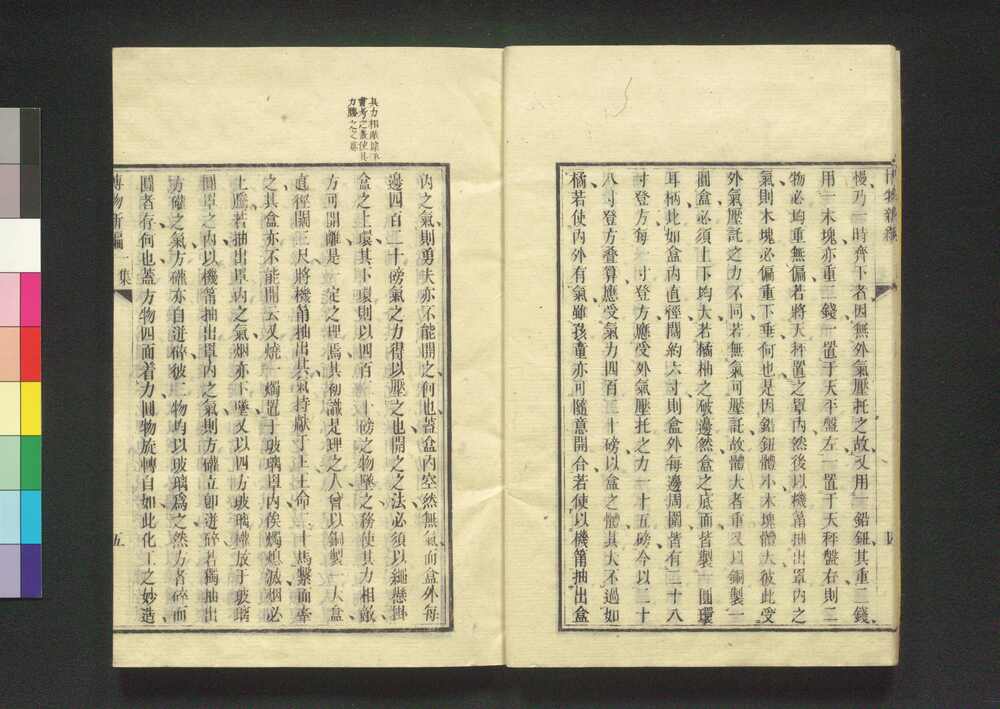 慢乃一時齊下者因無外氣壓托之故又用一鉛鈕其重二錢
用一木塊亦重二錢一置于天平盤左一置于天秤盤右則二
物必均重無偏若將天秤置之罩內然後以機筩抽出罩內之
氣則木塊必偏重下垂何也是因鉛鈕體小木塊體大彼此受
外氣壓託之力不同若無氣可壓託故體大者重又以銅製一
圓盒必須上下均大若橘柚之破邊然盒之底面皆製一圓環
耳柄比如盒內直徑闊約六寸則盒外每邊周圍皆有二十八
寸登方每一寸登方應受外氣壓托之力一十五磅今以二十
八寸登方叠算應受氣力四百二十磅以盒之體其大不過如
橘若使內外有氣雖孩童亦可隨意開合若使以機筩抽出盒
內之氣則勇夫亦不能開之何也蓋盒內空然無氣而盒外每
邊四百二十磅氣之力得以壓之也開之之法必須以繩懸掛
盒之上環其下環則以四百二十磅之物墜之務使其力相敵
方可開離是一定之理焉其初識是理之人曾以銅製一大盒
直徑闊三尺將機筩抽出其氣持獻于王王命二十馬繫而牽
之其盒亦不能開云又燒一燭置于玻璃罩內俟燭熄滅烟必
上騰若抽出罩內之氣烟亦下墜又以四方玻璃罐放于玻璃
圓罩之內以機筩抽出罩內之氣則方罐立即迸碎若獨抽出
方罐之氣方罐亦自迸碎彼二物均以玻璃爲之然方者碎而
圓者存何也蓋方物四面着力圓物旋轉自如此化工之妙造
博物新編 一集
五
其力相敵據原
書考之蓋使其
力勝之之意